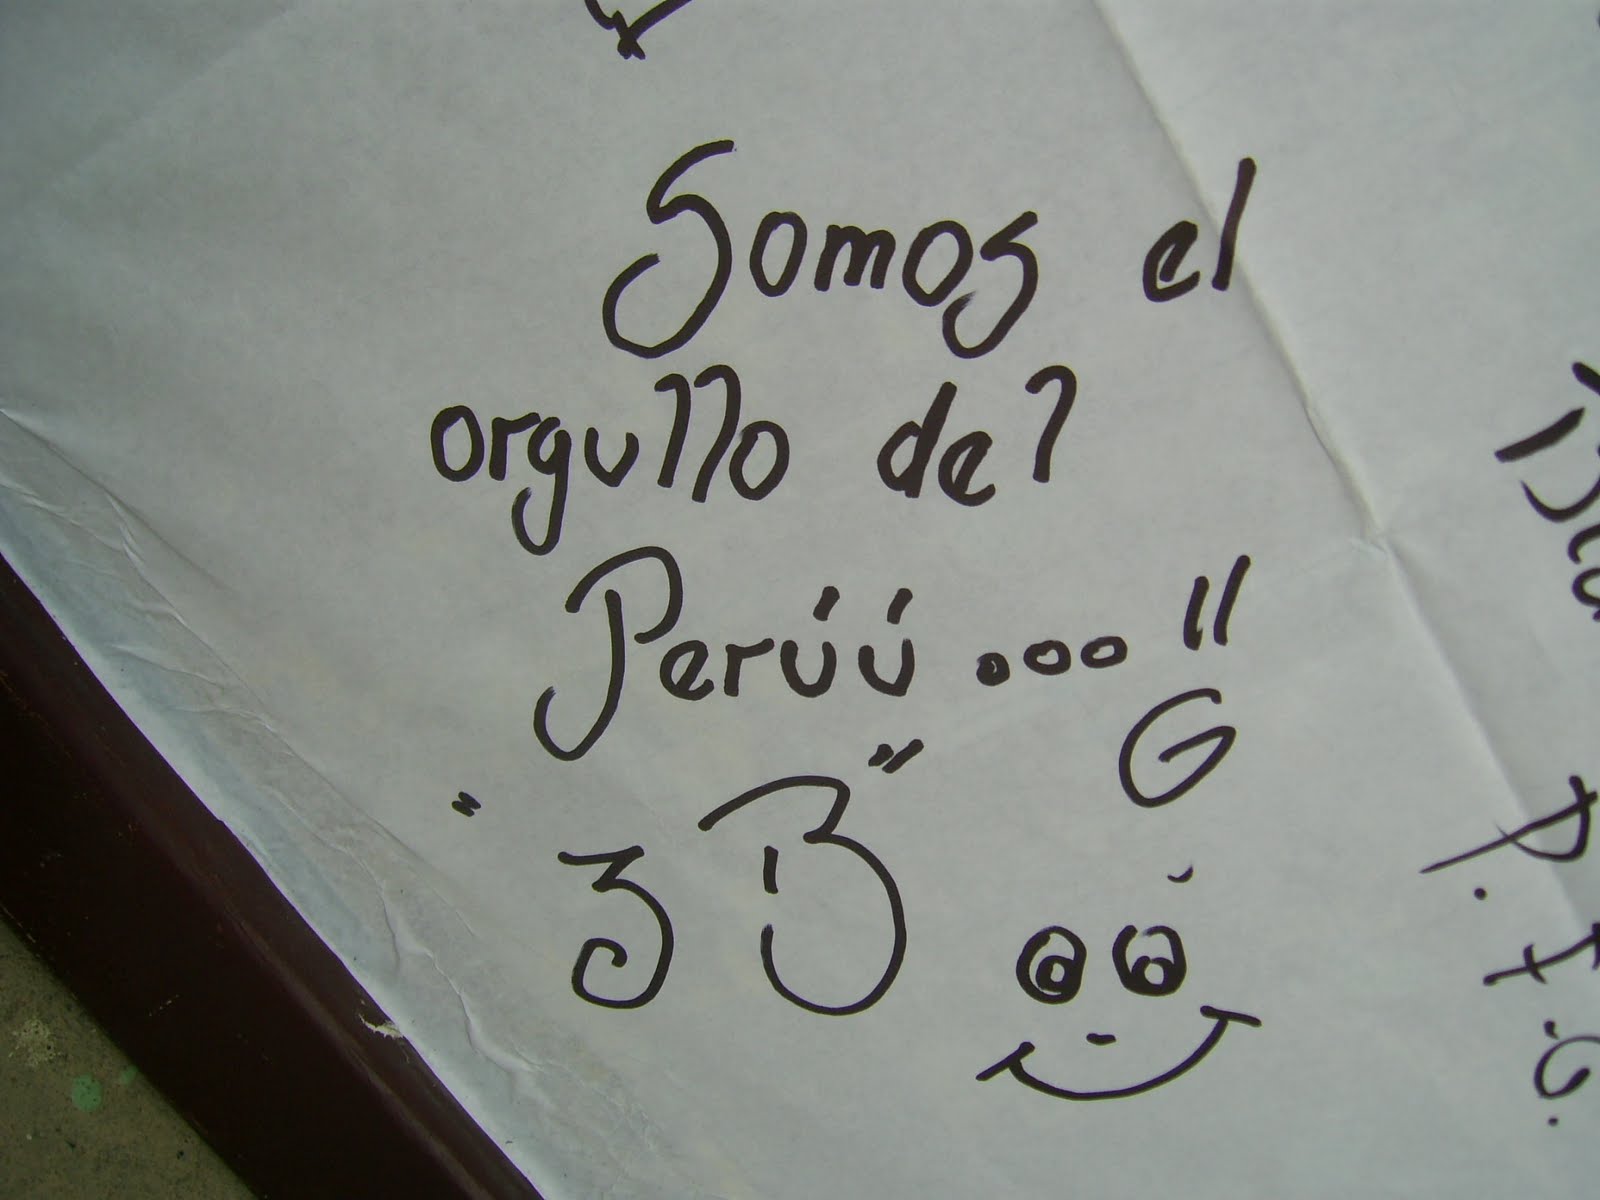 Somos el
orgullo del
Perúú...!!
G
"3 B"
P. F. G.